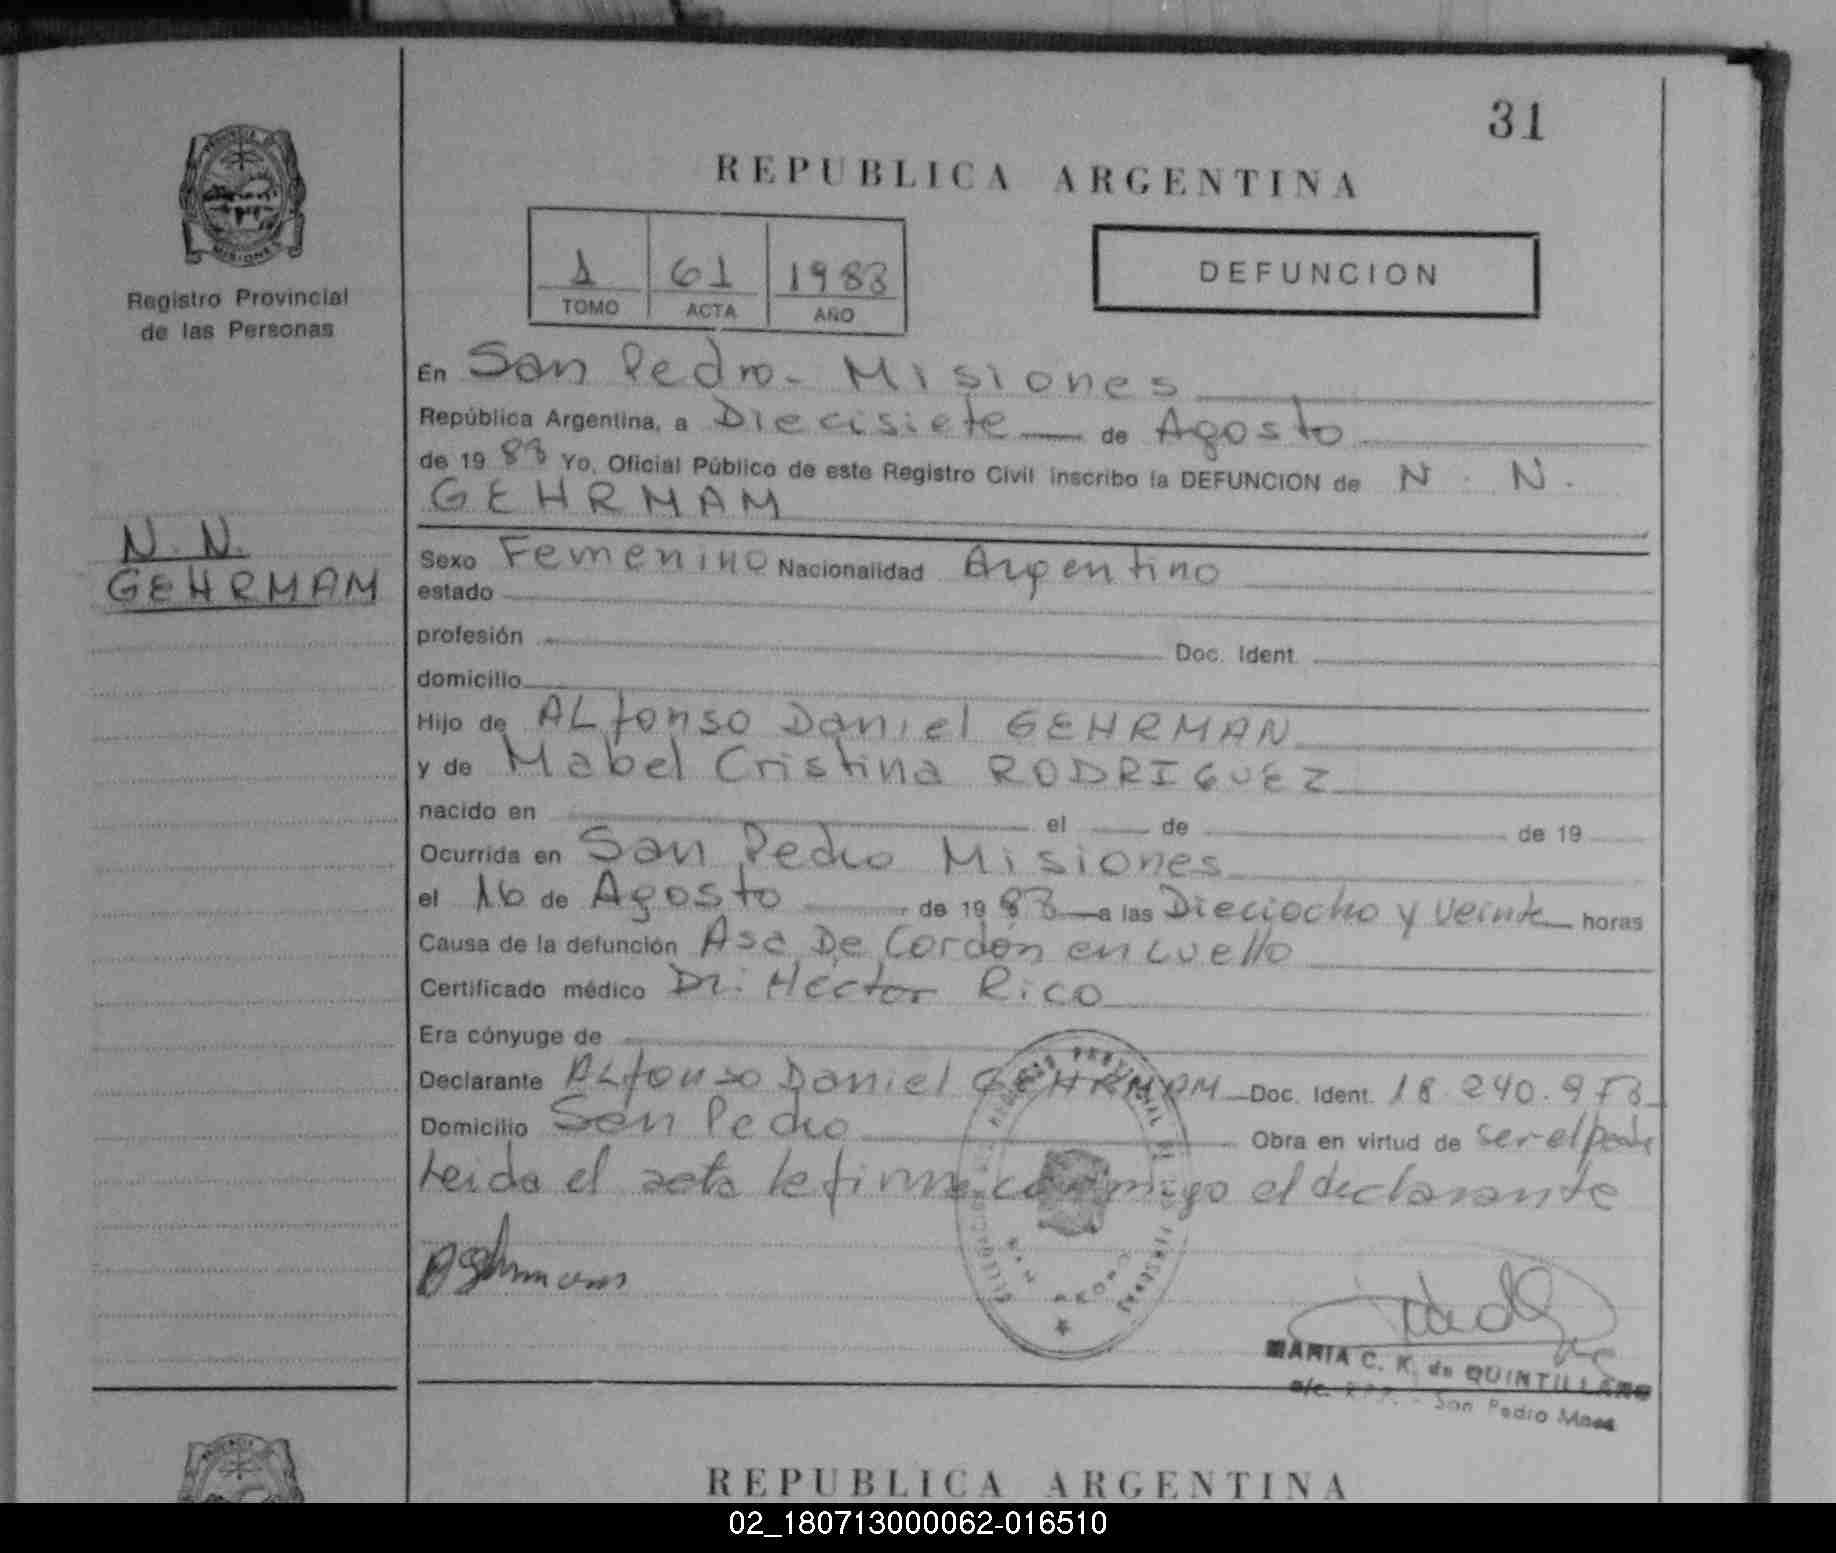 31
REPUBLICA ARGENTINA
PROVINCIA
MISIONES
Registro Provincial
de las Personas
1 61 1983
TOMO ACTA AÑO
DEFUNCION
En San Pedro - Misiones
República Argentina, a Diecisiete de Agosto
de 19 83 Yo, Oficial Público de este Registro Civil inscribo la DEFUNCION de N. N.
GEHRMAM
N. N.
GEHRMAM
Sexo Femenino Nacionalidad Argentino
estado
profesión Doc. Ident.
domicilio
Hijo de ALfonso Daniel GEHRMAN
y de Mabel Cristina RODRIGUEZ
nacido en el de de 19
Ocurrida en San Pedro Misiones
el 16 de Agosto de 19 83 a las Dieciocho y veinte horas
Causa de la defunción Asa De Cordón en cuello
Certificado médico Dr. Héctor Rico
Era cónyuge de
Declarante ALfonso Daniel GEHRMAM Doc. Ident. 18.240.973
Domicilio San Pedro Obra en virtud de ser el padre
Leida el acta la firma conmigo el declarante
MARIA C. K. de QUINTILLANO
a/c. R.P.P. - San Pedro Mnes
REPUBLICA ARGENTINA
02_180713000062-016510